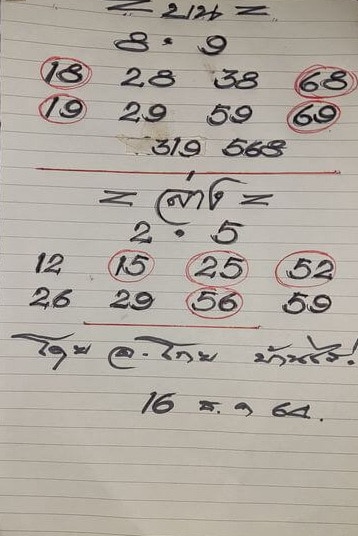 = บน =
8 • 9
18 28 38 68
19 29 59 69
319 568
= ล่าง =
2 • 5
12 15 25 52
26 29 56 59
โดย อ.โกย บ้านไร่
16 ธ.ค 64.